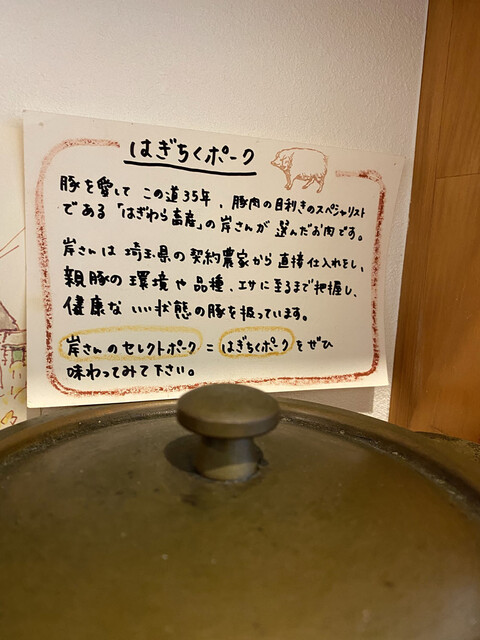 はぎちくポーク
豚を愛して この道35年、豚肉の目利きのスペシャリスト
である「はぎわら畜産」の岸さんが 選んだお肉です。
岸さんは 埼玉県の契約農家から 直接仕入れをし、
親豚の環境や品種、エサに至るまで把握し、
健康な いい状態の豚を扱っています。
岸さんのセレクトポーク = はぎちくポーク をぜひ
味わってみて下さい。